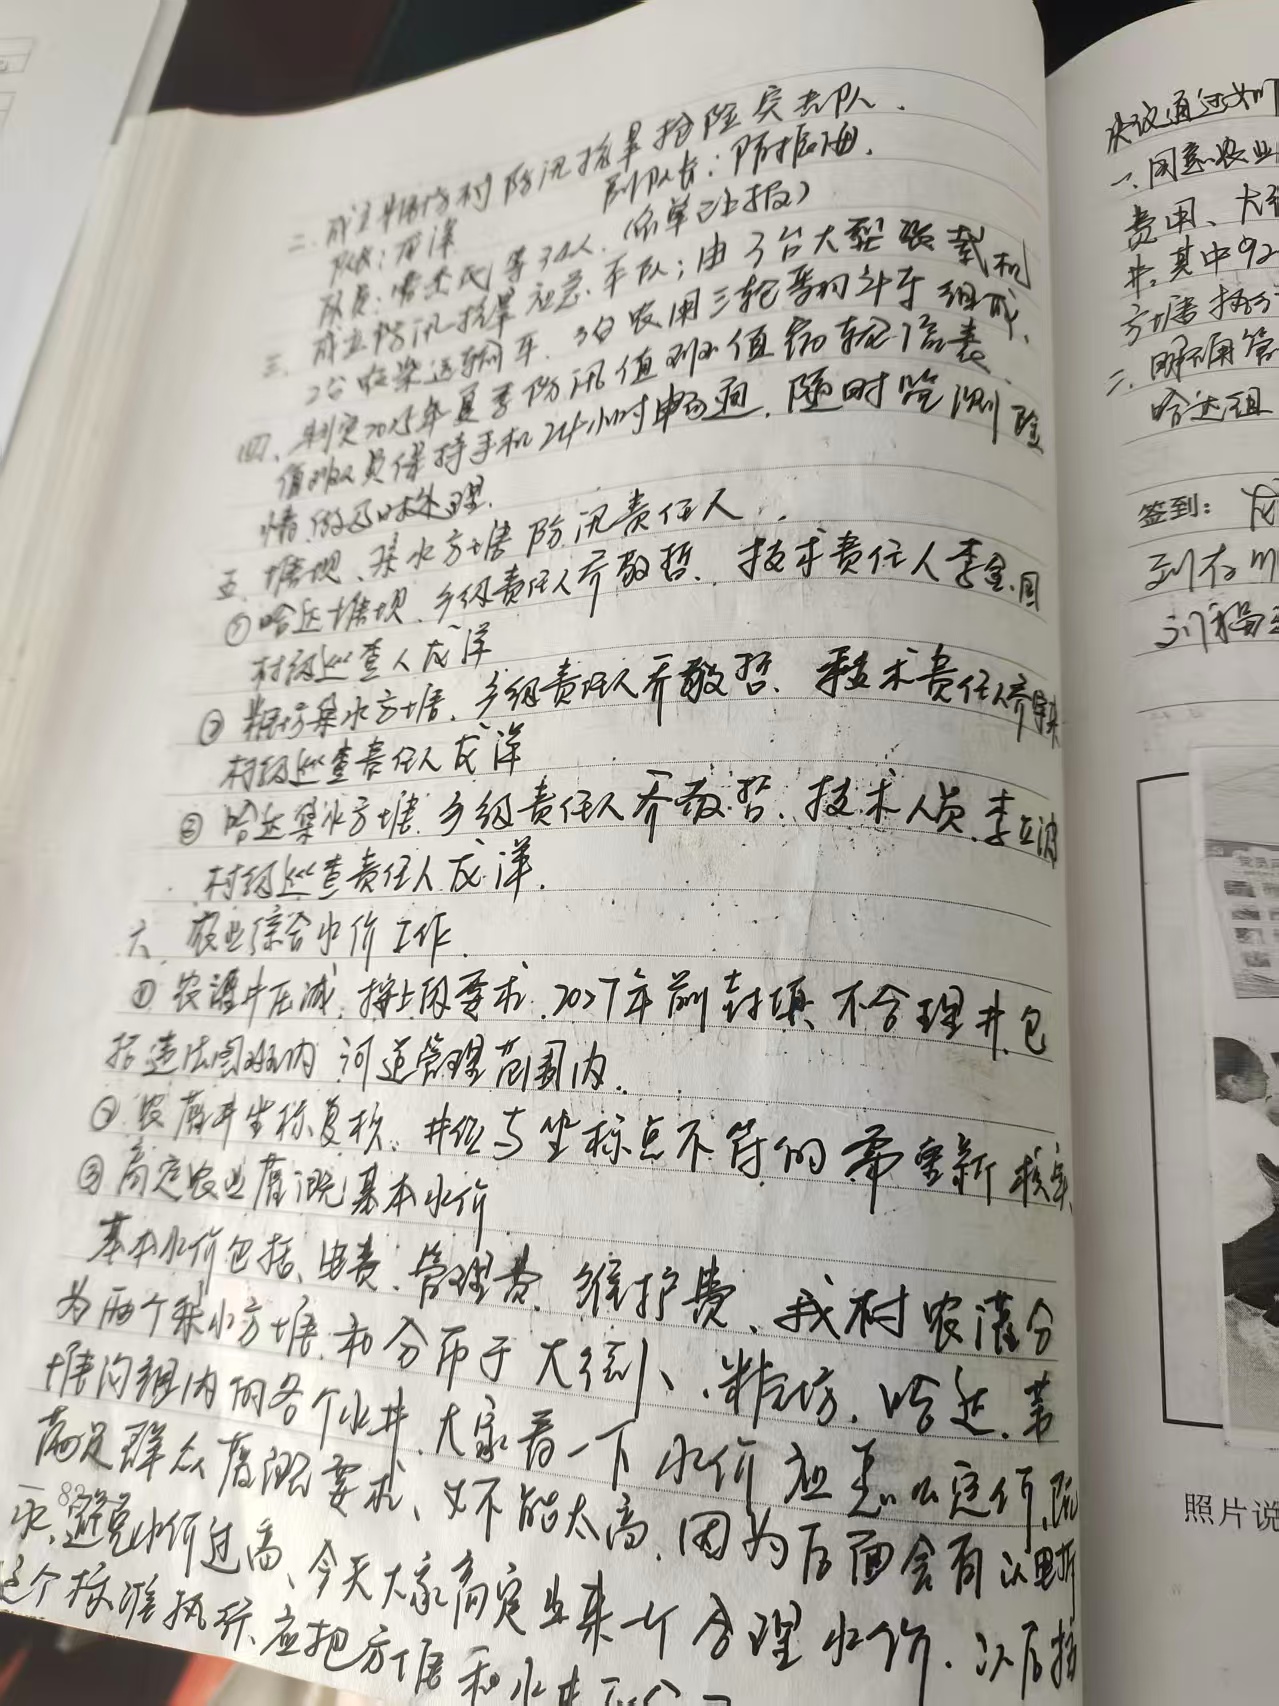 二、成立粮坊村防汛抗旱抢险突击队.
队长:龙洋 副队长:
队员: 等30人.(名单已上报)
三、成立防汛抗旱应急车队;由3台大型装载机
2台 运输车、3台农用三轮 斗车组成.
四、制定2025年夏季防汛值班值宿轮 表.
值班人员保持手机24小时畅通.随时监测险
情.做及时处理.
五、塘坝、集水方塘防汛责任人.
①哈达塘坝.乡级责任人乔敬哲.技术责任人李金国
村级巡查人龙洋
② 粮坊集水方塘.乡级责任人乔敬哲、技术责任人
村级巡查责任人龙洋
③ 哈达集水方塘.乡级责任人乔敬哲.技术人员.李立波
村级巡查责任人龙洋.
六、农业综合水价工作.
① 农灌井压减.按上级要求.2027年前封填不合理井包
括违法图斑内 河道管理范围内.
② 农灌井坐标复核.井位与坐标点不符的需重新核实.
③ 商定农业灌溉基本水价
基本水价包括、电费、管理费、维护费、我村农灌分
为两个集水方塘.和分布于 、粮坊.哈达.
塘沟组内的各个水井.大家看一下水价应怎么定价.既
满足群众灌溉要求、又不能太高.因为后面会有以电折
水、避免水价过高、今天大家商定出来一个合理水价.以后按
这个标准执行.应把方塘和水井
88
决议通过如
一、同意农业
费用、大
井.其中92
方塘
二、明确管
哈达组
签到: 龙
照片说